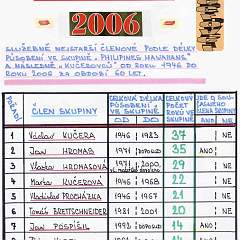 2006
SLUŽEBNĚ NEJSTARŠÍ ČLENOVÉ PODLE DÉLKY
PŮSOBENÍ VE SKUPINĚ "PHILIPINES HAVAHANS"
A NÁSLEDNĚ "KUČEROVCŮ" OD ROKU 1946 DO
ROKU 2006 ZA OBDOBÍ 60 LET.
POŘADÍ ČLEN SKUPINY CELKOVÁ DÉLKA PŮSOBENÍ VE SKUPINĚ OD DO CELKOVÝ POČET ROKŮ VE SKUPINĚ JDE O SOUČASNÉHO ČLENA SKUPINY ANO NE
1 Václav KUČERA 1946 1983 37 NE
2 Jan HROMAS 1971 DOPOSUD 35 ANO
3 Vlasta HROMASOVÁ 1971 DOPO. 29
4 Marta KUČEROVÁ 1946 1968 22 NE
5 Vladislav PROCHÁZKA 1946 1967 21 NE
6 Tomáš BRETTSCHNEIDER 1981 2001 20 NE
7 Jan POSPÍŠIL 1992 DOPOSUD 14 ANO